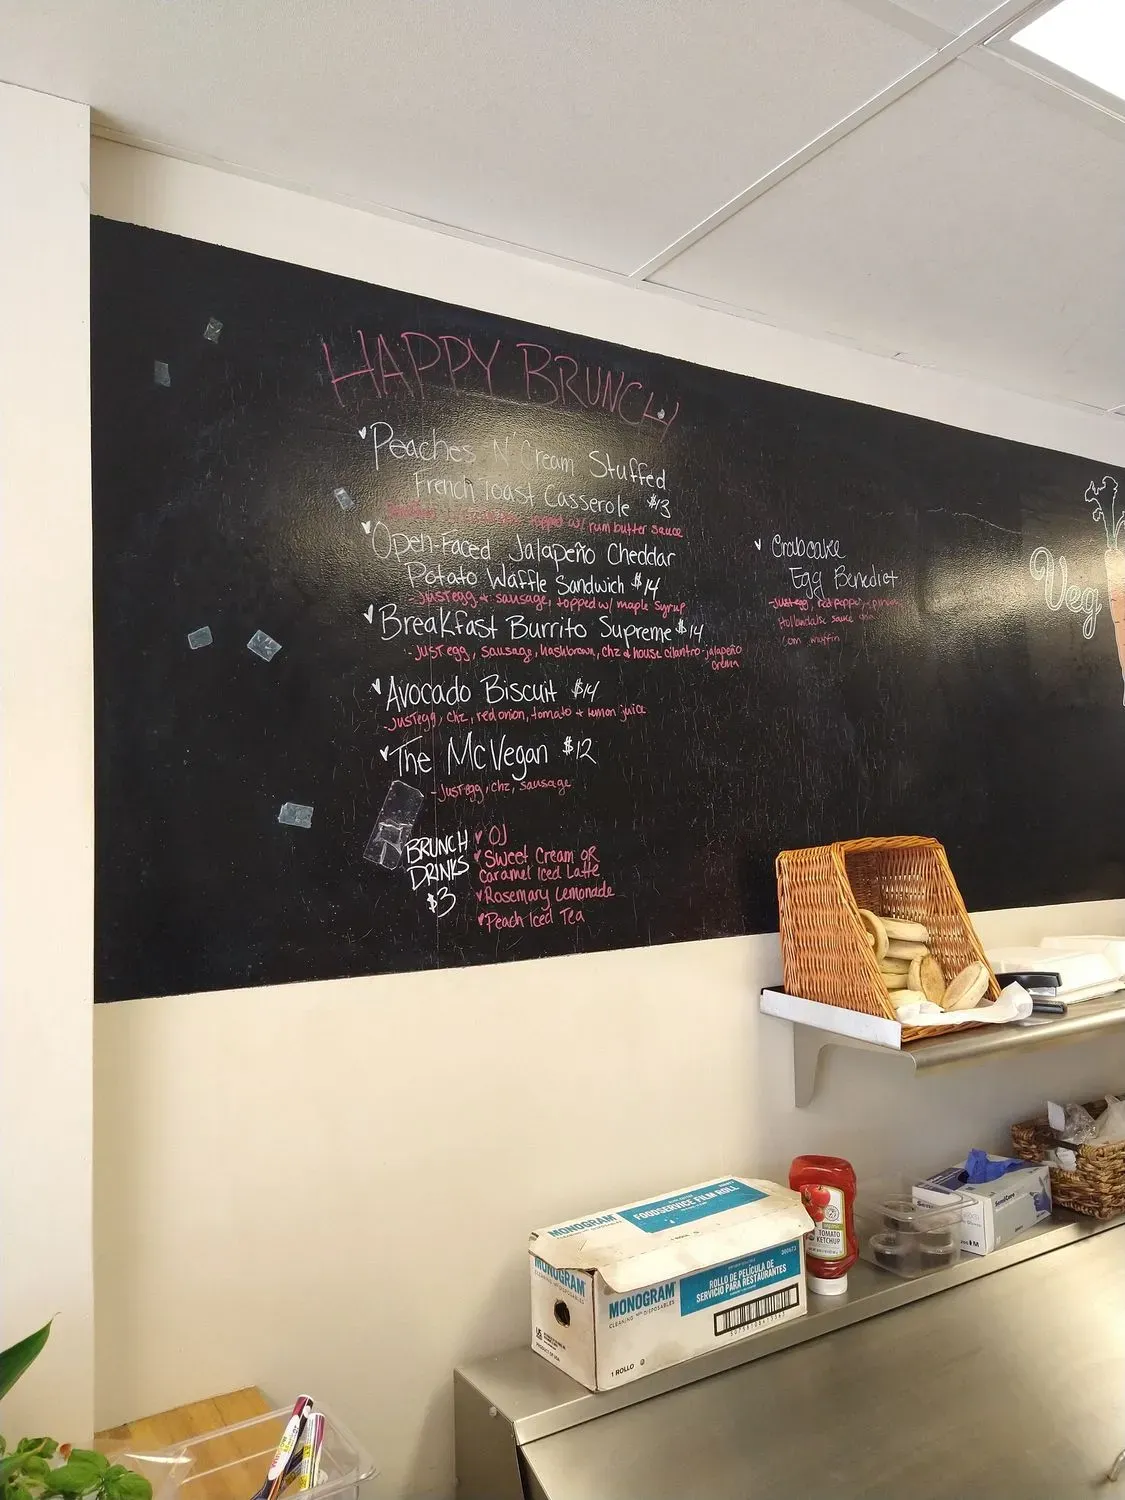 HAPPY BRUNCH
Peaches N' Cream Stuffed
French Toast Casserole $13
topped w/ rum butter sauce
Open-Faced Jalapeño Cheddar
Potato Waffle Sandwich $14
-justegg + sausage, topped w/ maple syrup
Breakfast Burrito Supreme $14
-justegg, sausage, hashbrown, chz & house cilantro-jalapeño
crema
Avocado Biscuit $14
-justegg, chz, red onion, tomato + lemon juice
The McVegan $12
-justegg, chz, sausage
BRUNCH
DRINKS
$3
OJ
Sweet Cream OR
Caramel Iced Latte
Rosemary Lemonade
Peach Iced Tea
Crabcake
Egg Benedict
-justegg, red pepper,
Hollandaise sauce
muffin
Veg
MONOGRAM
FOODSERVICE FILM ROLL
1 ROLL
MONOGRAM
MONOGRAM
CLEANING DISPOSABLES
ROLLO DE PELÍCULA DE
SERVICIO PARA RESTAURANTES
300673
1 ROLLO
organic
TOMATO
KETCHUP